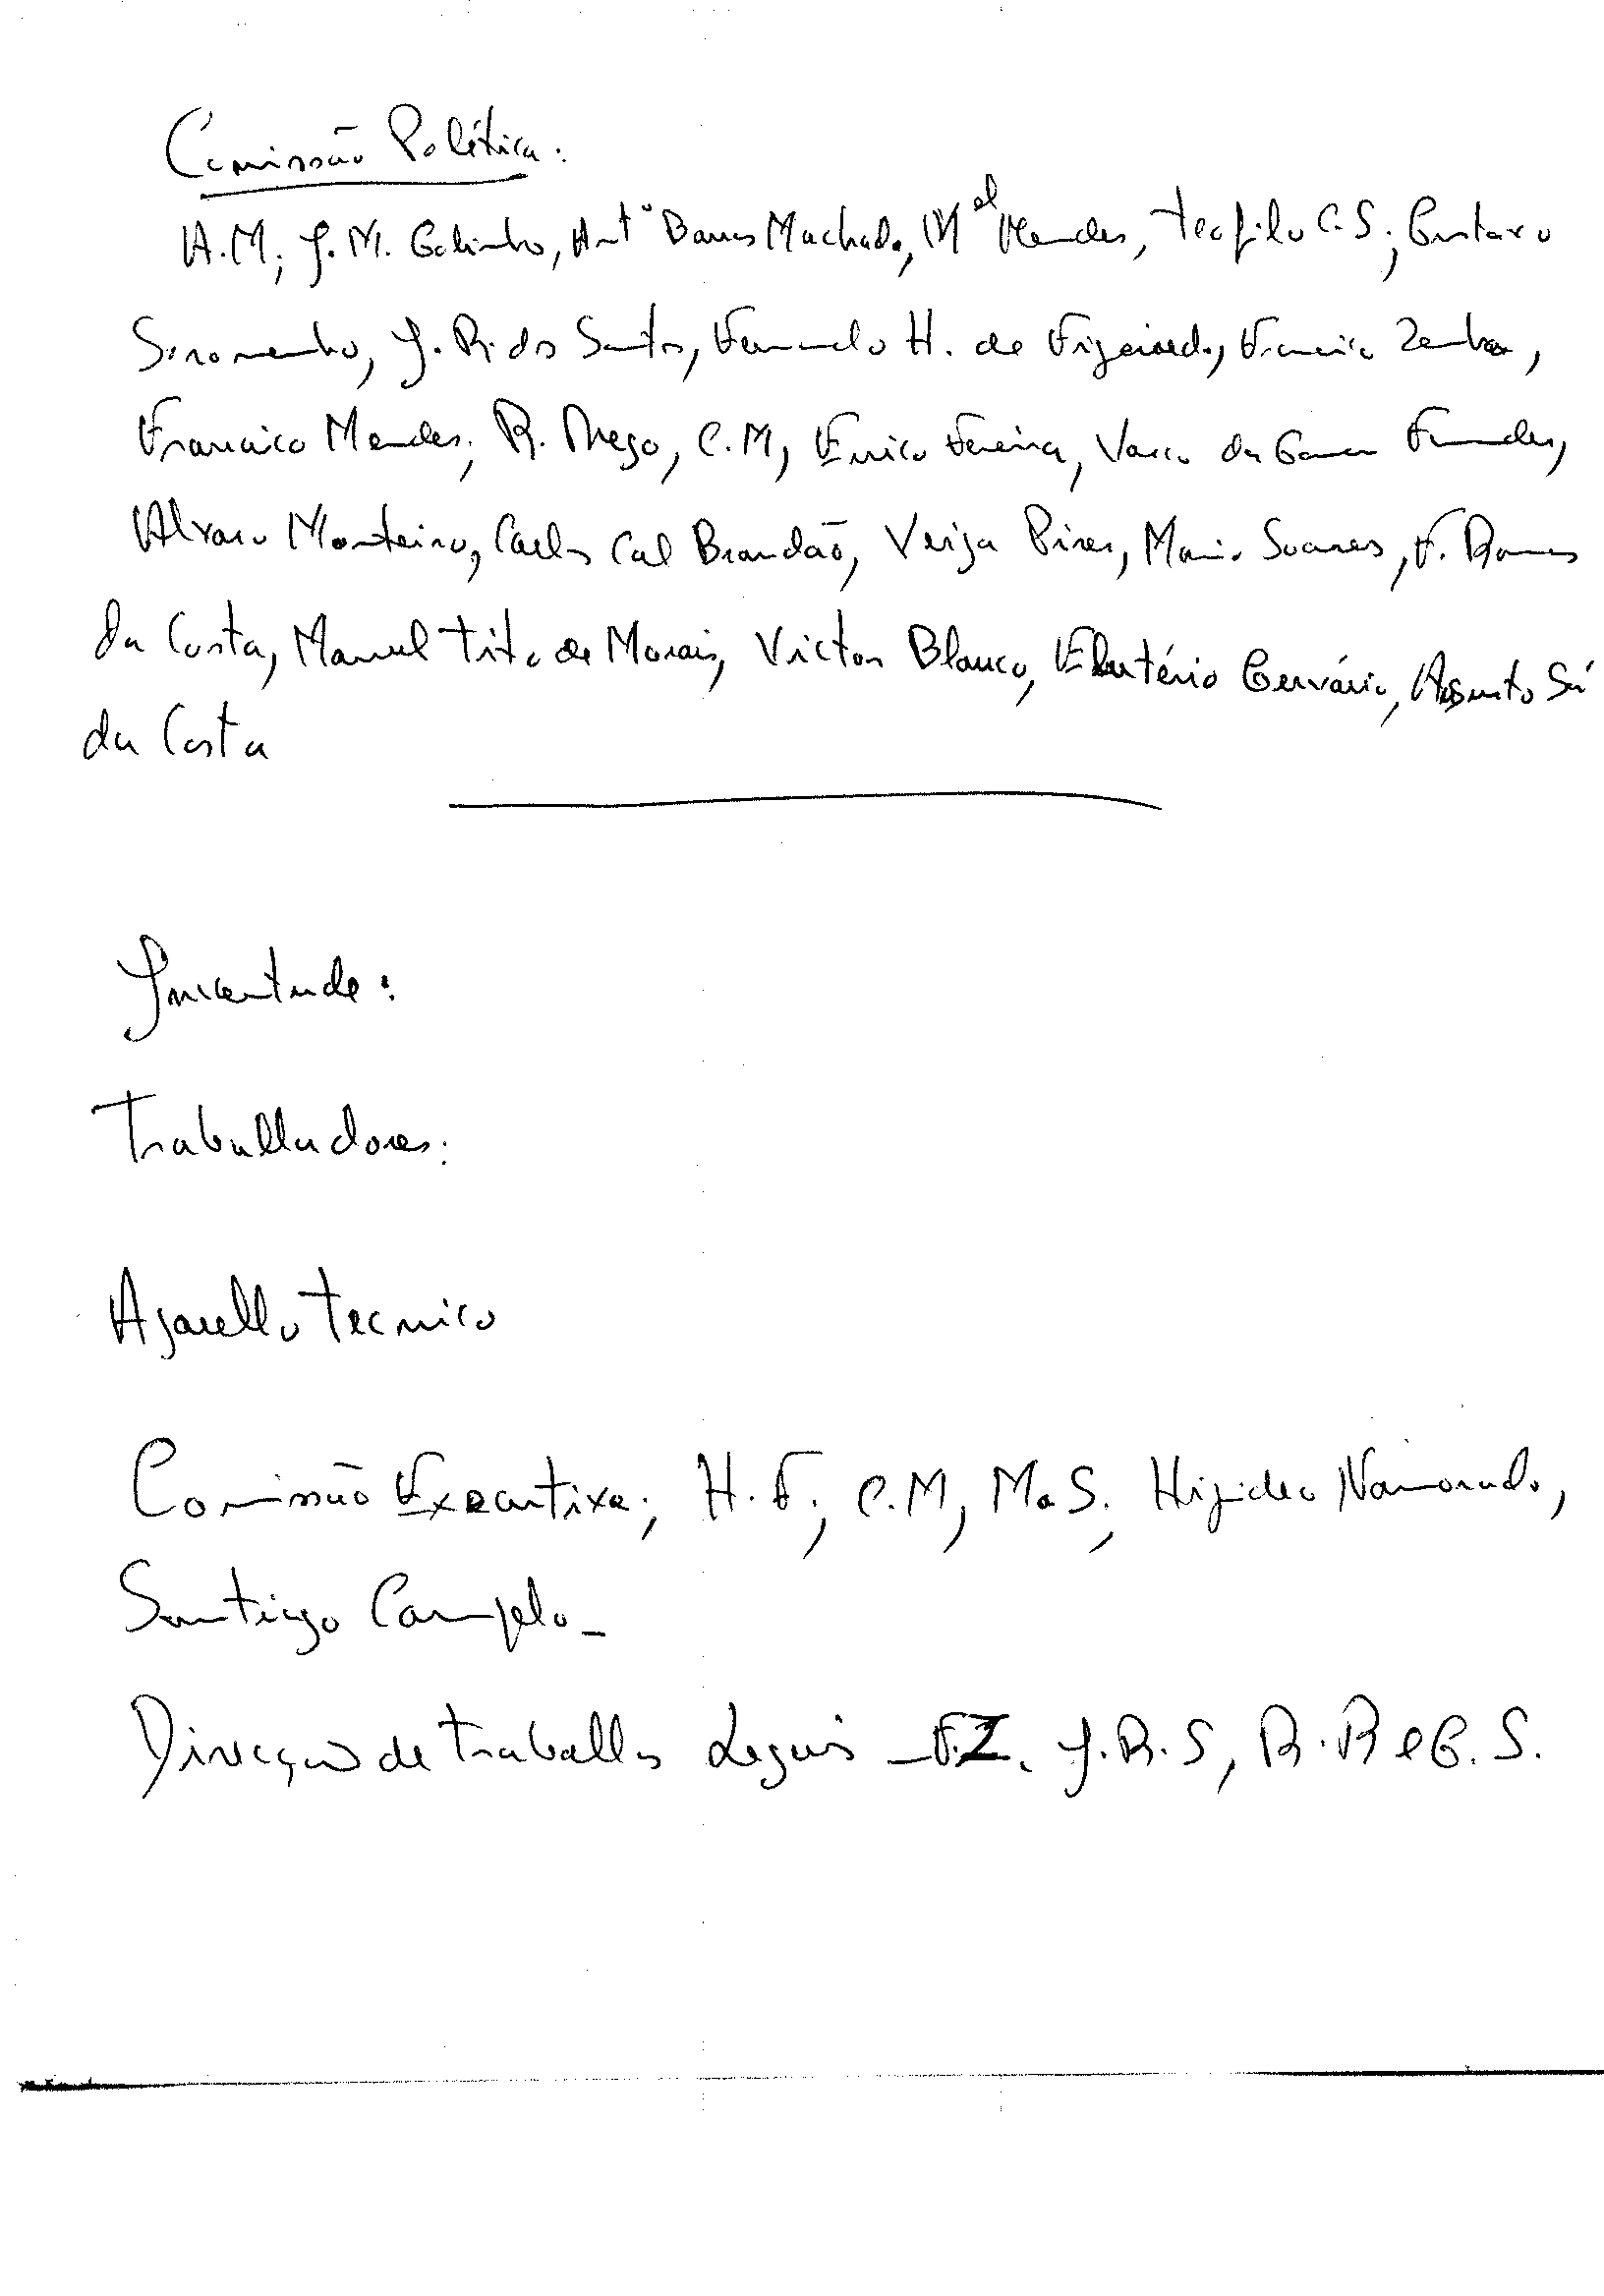 Comissão Política:
A.M; J.M. Godinho, Antº Barros Machado, Mel Mendes, Teofilo C.S.; Gustavo
Soromenho, J. R. dos Santos, Fernando H. de Figueiredo, Francisco Zenha,
Francisco Mendes; R. Rego, C.M, Eurico Ferreira, Vasco da Gama Fernandes,
Alvaro Monteiro, Carlos Cal Brandão, Veiga Pires, Mario Soares, F. Ramos
da Costa, Manuel Tito de Morais, Victor Blanco, Eleutério Gervásio, Augusto Sá
da Costa
Juventude:
Trabalhadores:
Aparelho tecnico
Comissão Executiva; H.F; C.M, M.S; Namorado,
Santiago Campelo_
Direcção de trabalhos Legais – F.Z. J.R.S, R.R e G.S.